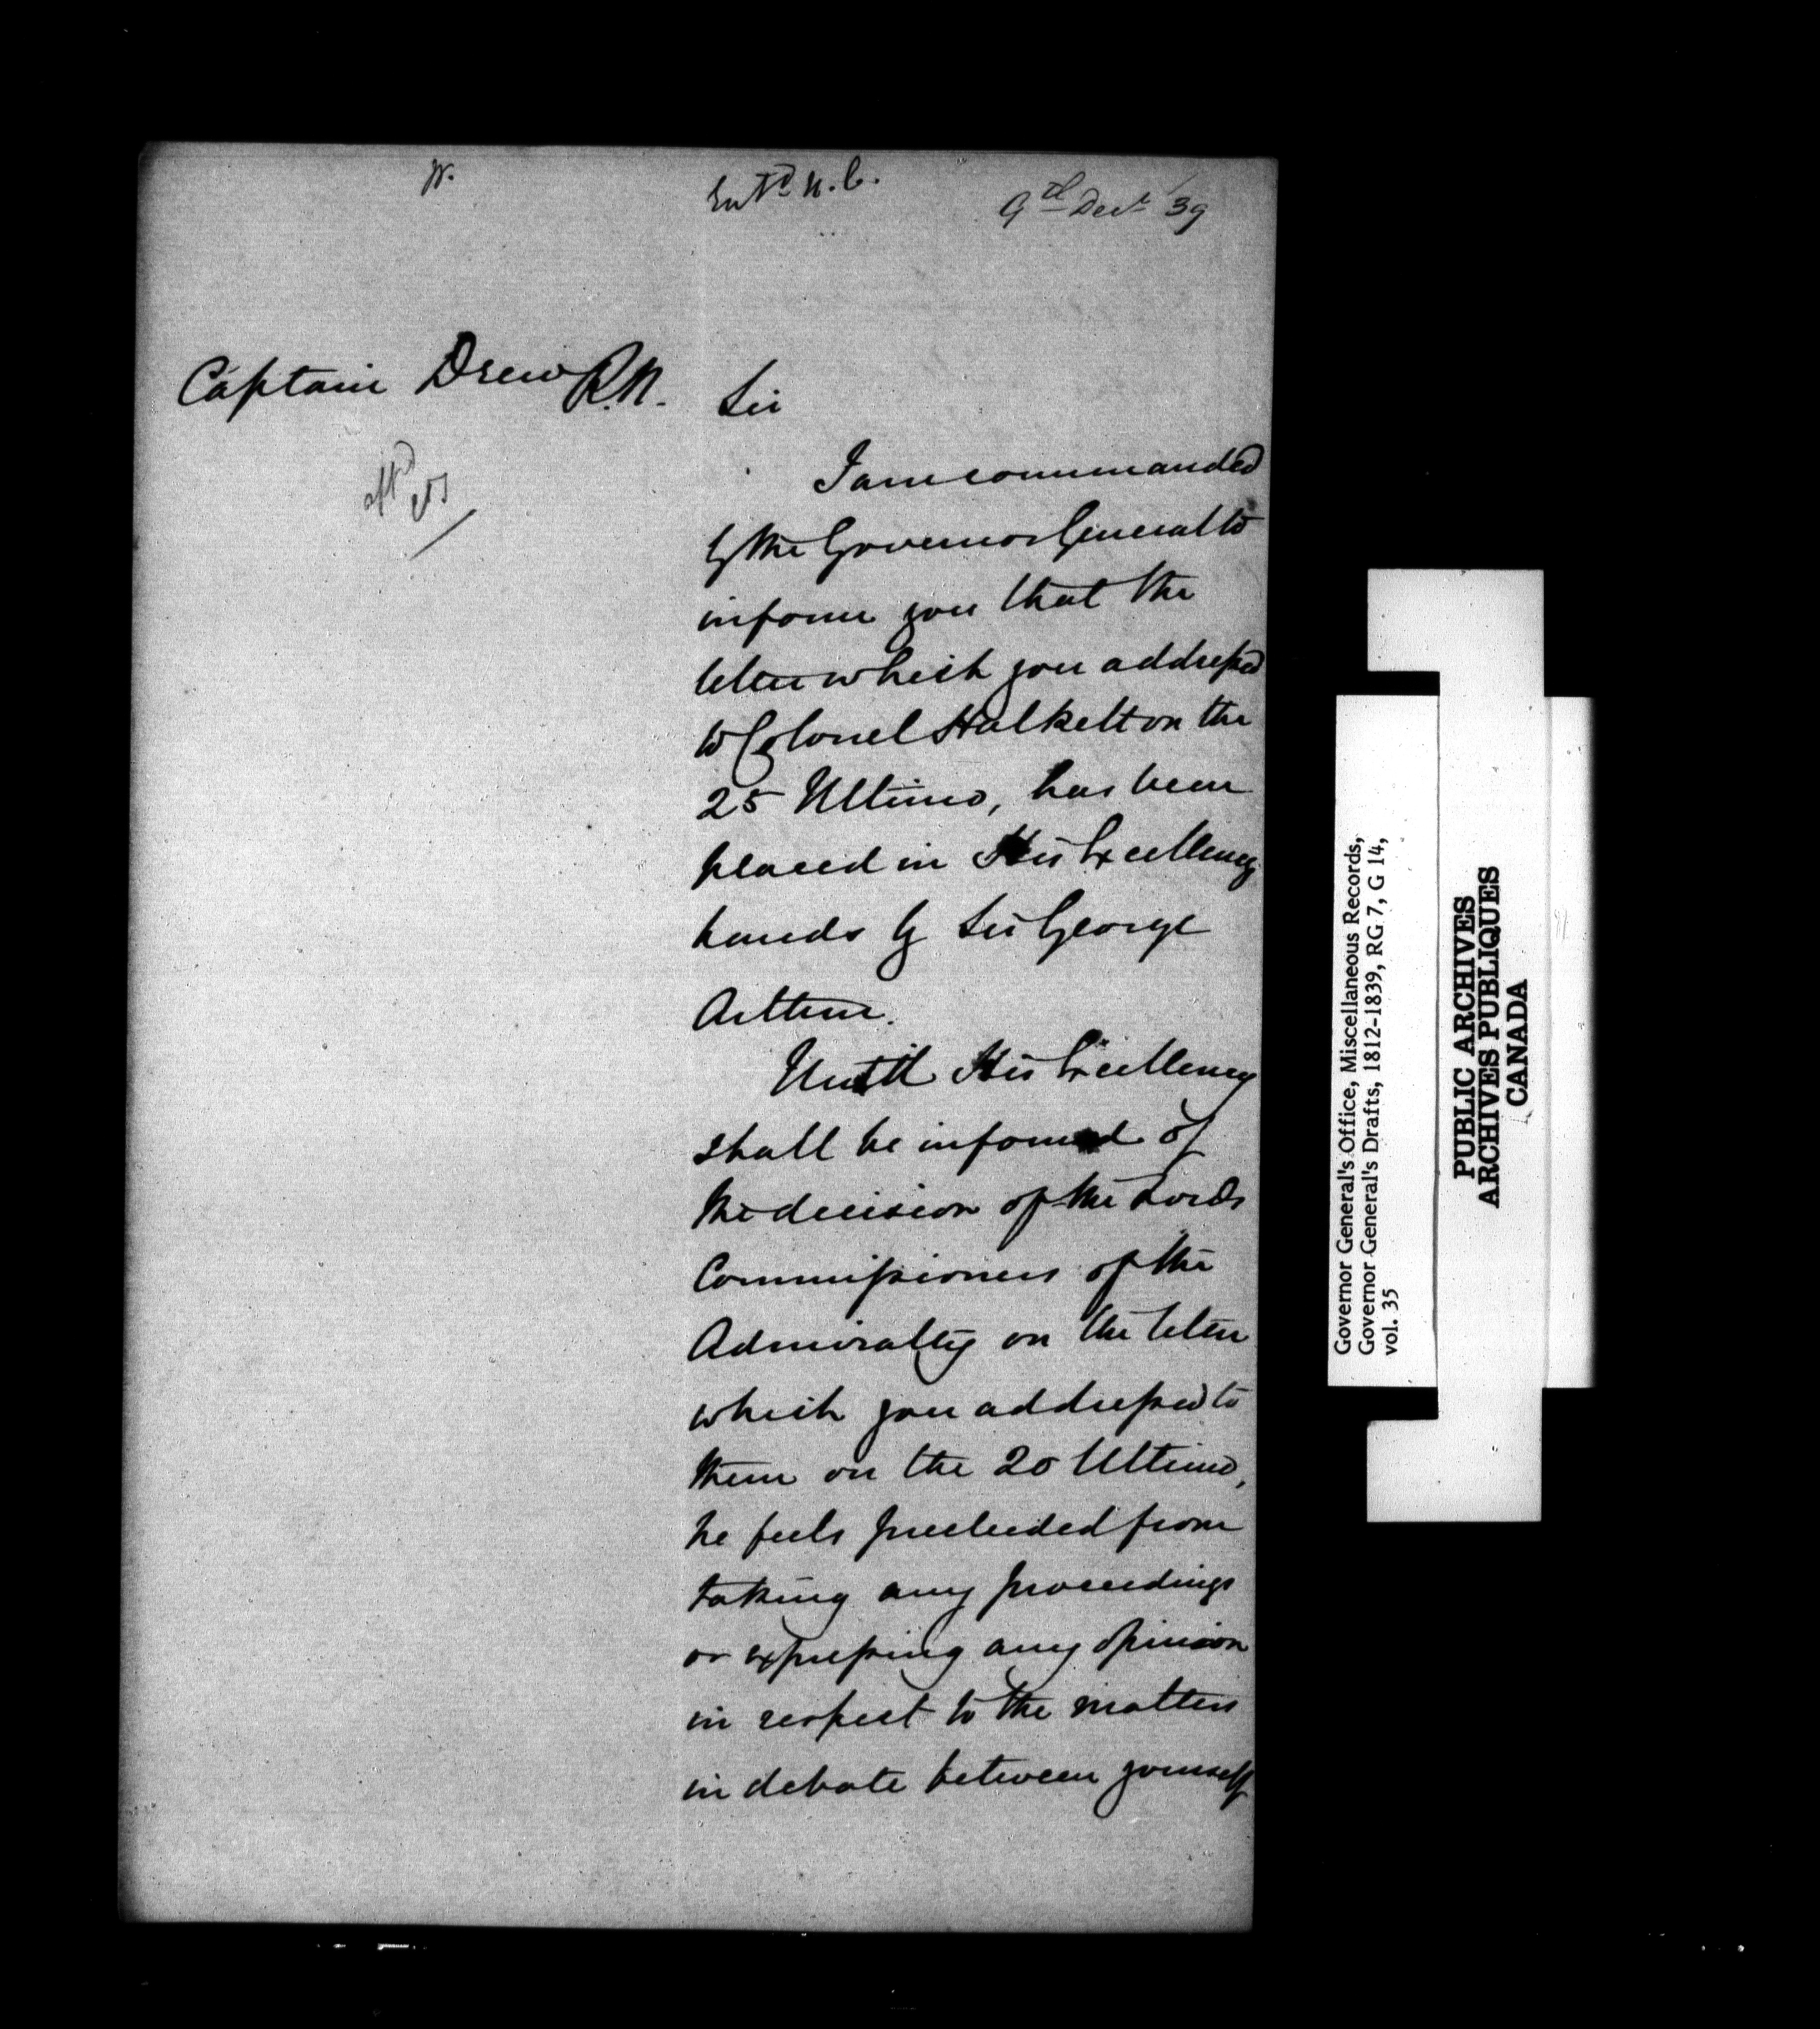 Entd U.C.
9th Decr /39
Captain Drew R.N.
Sir
I am commanded
by the Governor General to
inform you that the
letter which you addressed
to Colonel Halkett on the
25 Ultimo, has been
placed in His Excellency
hands by Sir George
Arthur.
Until His Excellency
shall be informed of
the decision of the Lords
Commissioners of the
Admiralty on the letter
which you addressed to
them on the 20 Ultimo,
he feels precluded from
taking any proceedings
or expressing any opinion
in respect to the matters
in debate between yourself
Governor General's Office, Miscellaneous Records,
Governor General's Drafts, 1812-1839, RG 7, G 14,
vol. 35
PUBLIC ARCHIVES
ARCHIVES PUBLIQUES
CANADA